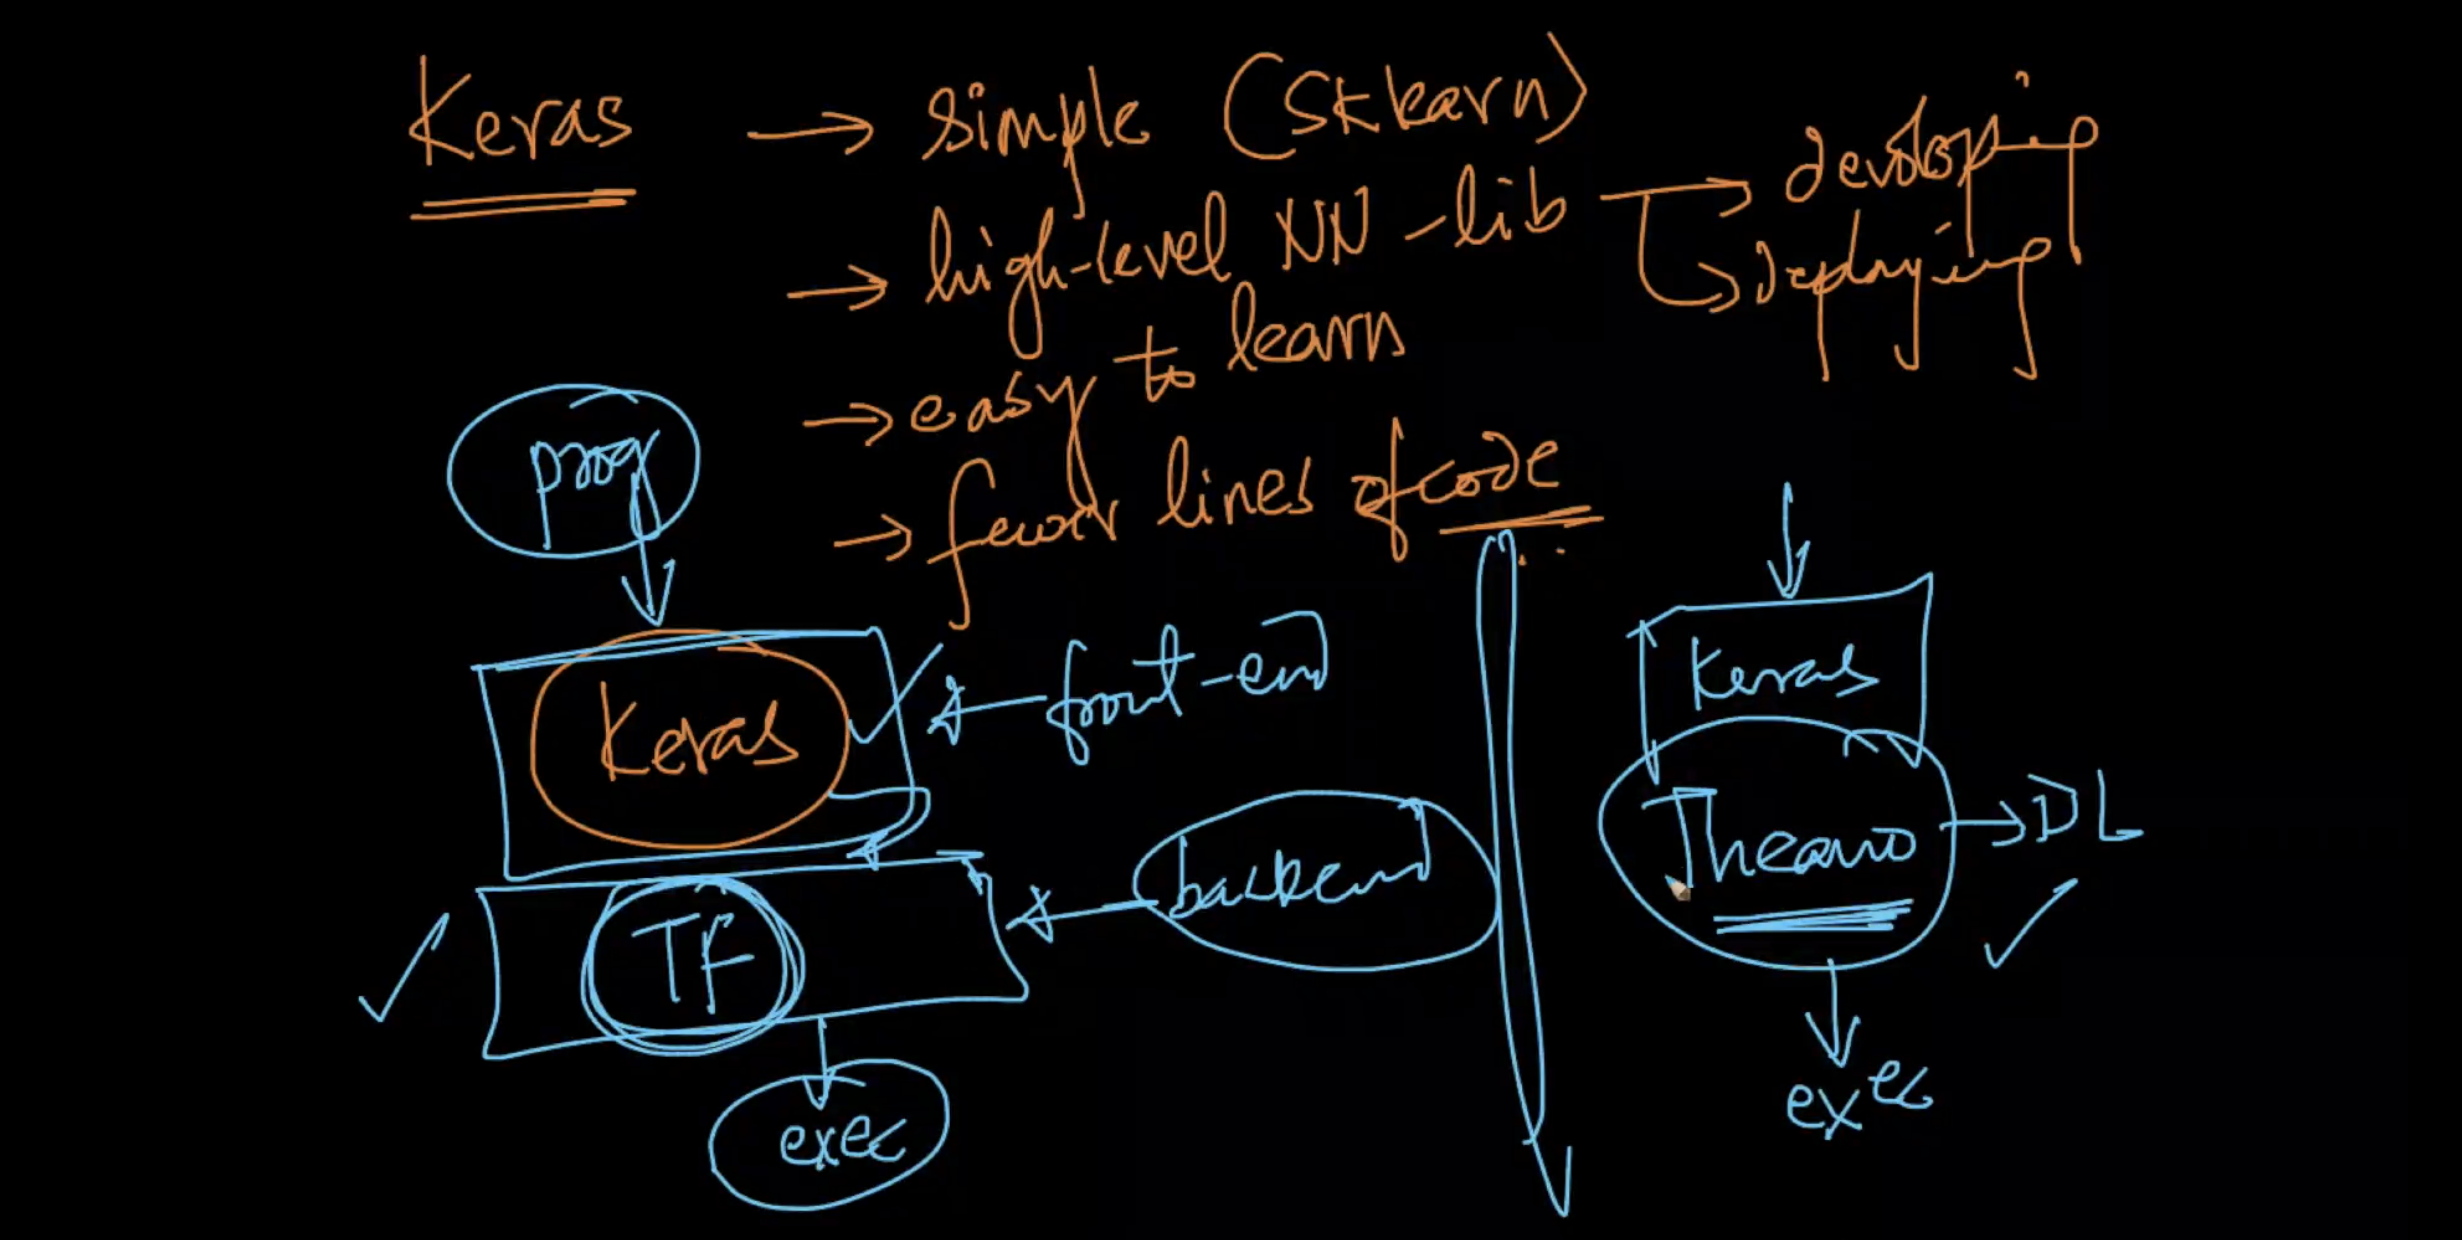 Keras → simple (Sklearn)
→ high-level NN-lib → developing
→ Deploying
→ easy to learn
→ fewer lines of code
prog
Keras ← front-end
TF ← backend
exec
Keras
Theano → DL
exec